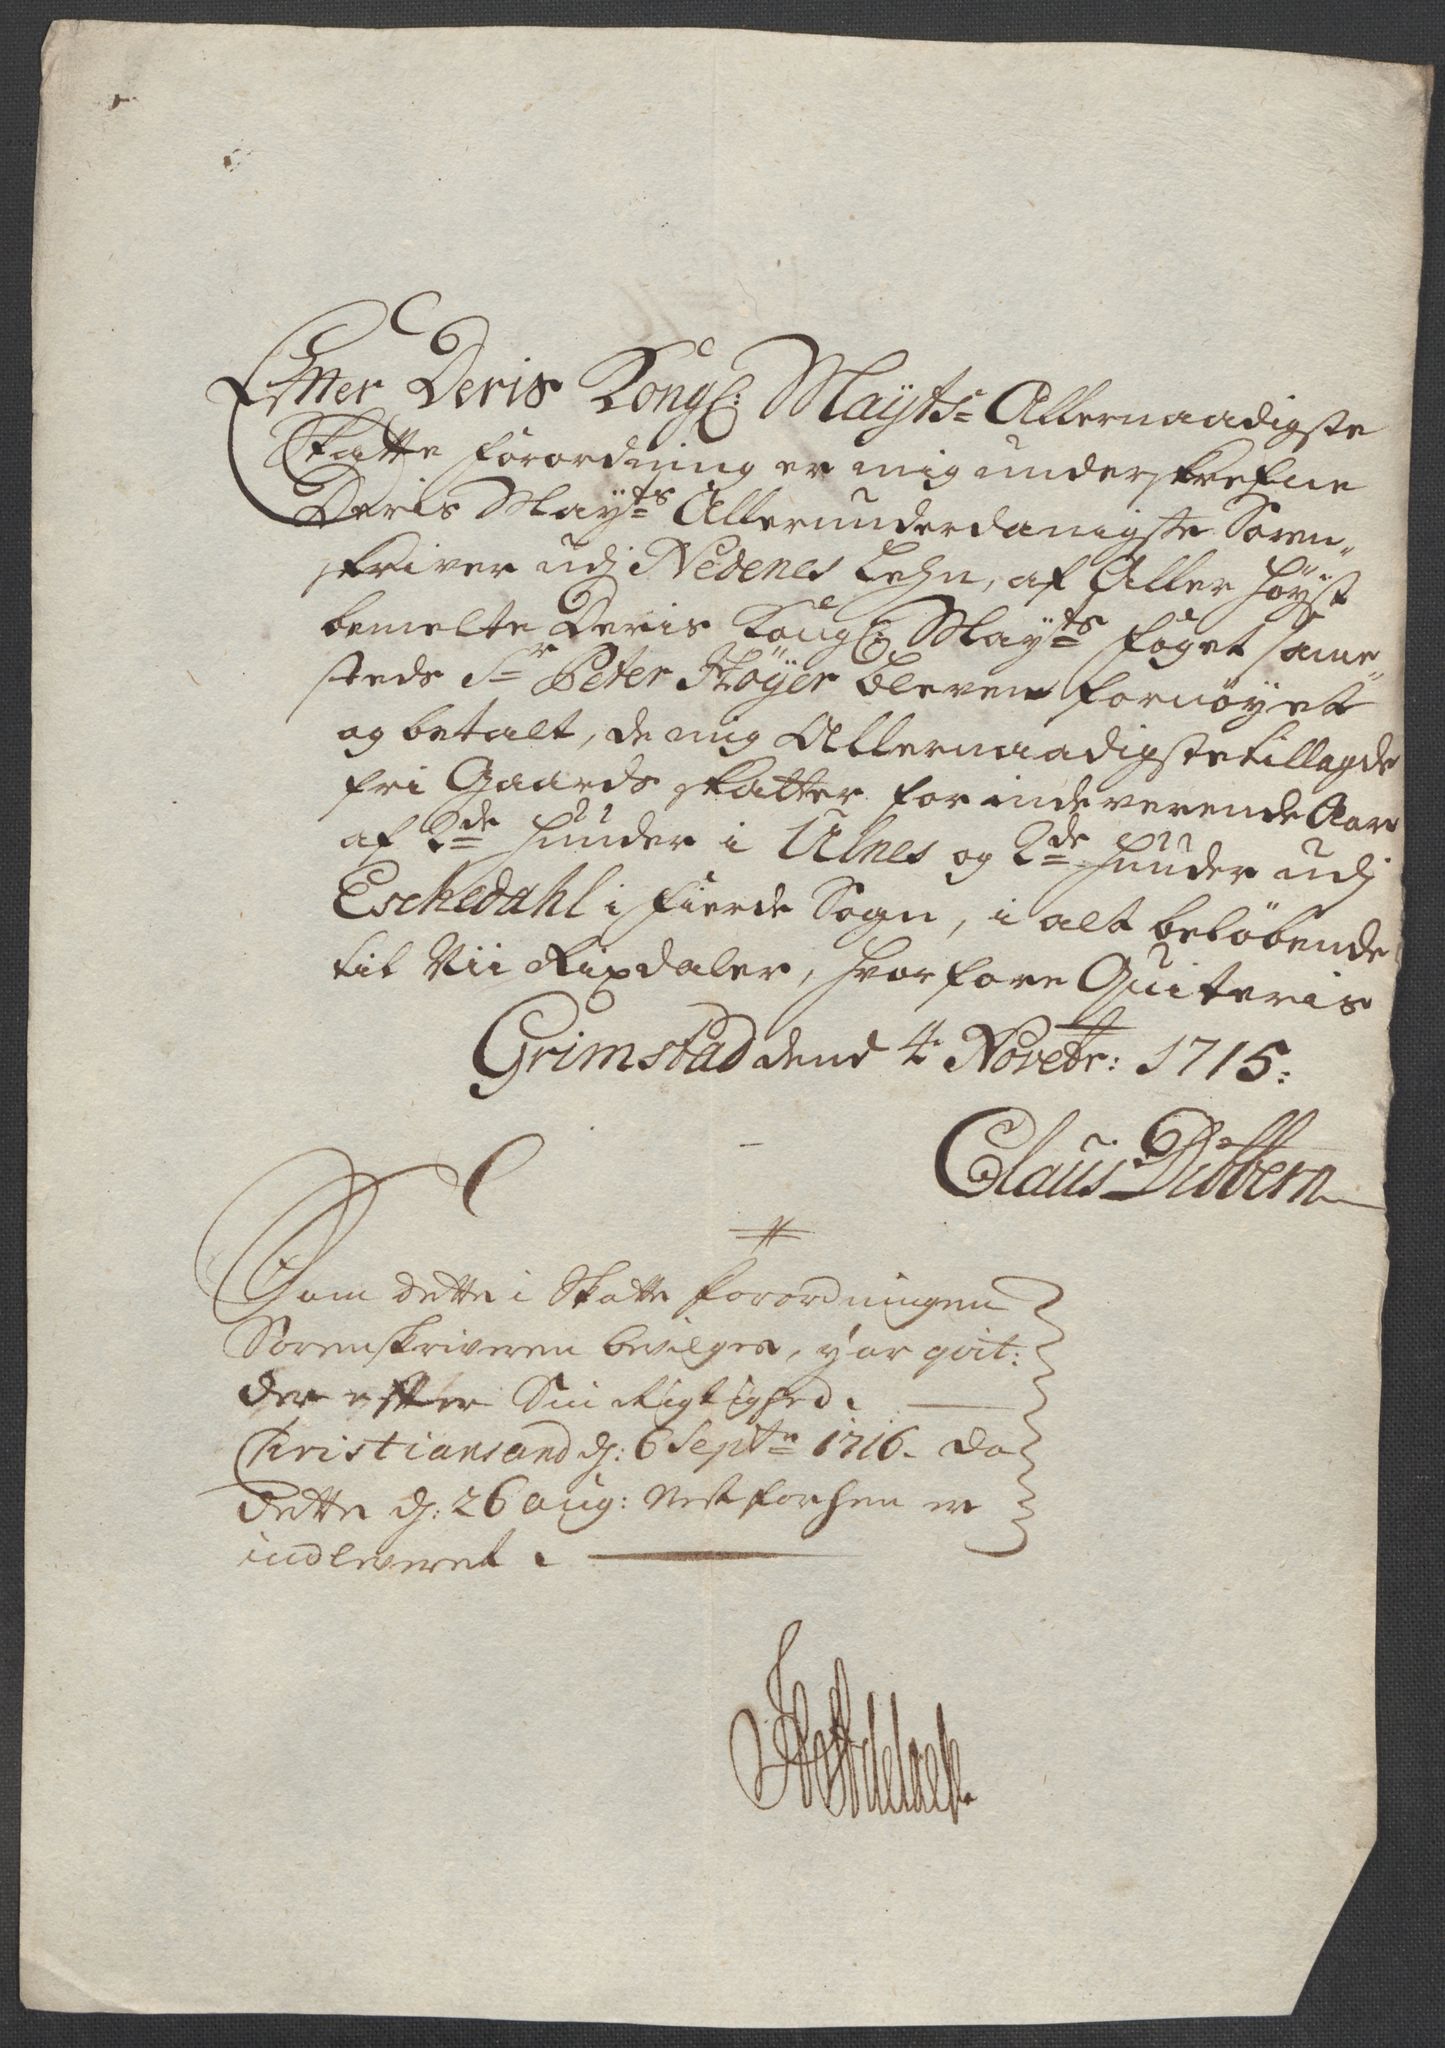 Efter Deris Kongl: Mayts Allernaadigste
Skatte forordning er mig underskrefne
Deris Mayts Allerunderdanigste Soren-
skriver udj Nedenes Lehn, af Aller Höyst
bemelte Deris Kongl: Mayts foget same-
steds Sr Peter Höyer bleven fornöyet
og betalt, de mig Allernaadigste tillagde
fri Gaards skatter for indeverende Aar
af 2de Huuder i Ulnes og 2de Huuder udj
Eschedahl i Fierde Sogn, i alt belöbende
til Vii Rixdaler, hvorfore Quiteris
Grimstad dend 4 Novebr: 1715.
Claus Dibbern
Som dette i Skatte forordningen
Sorenskriveren bevilges, har qvit:
der efter Sin Rigtighed.
Christiansand d: 6 Septr 1716. Da
dette d: 26 Aug: Nest forhen er
indleveret.